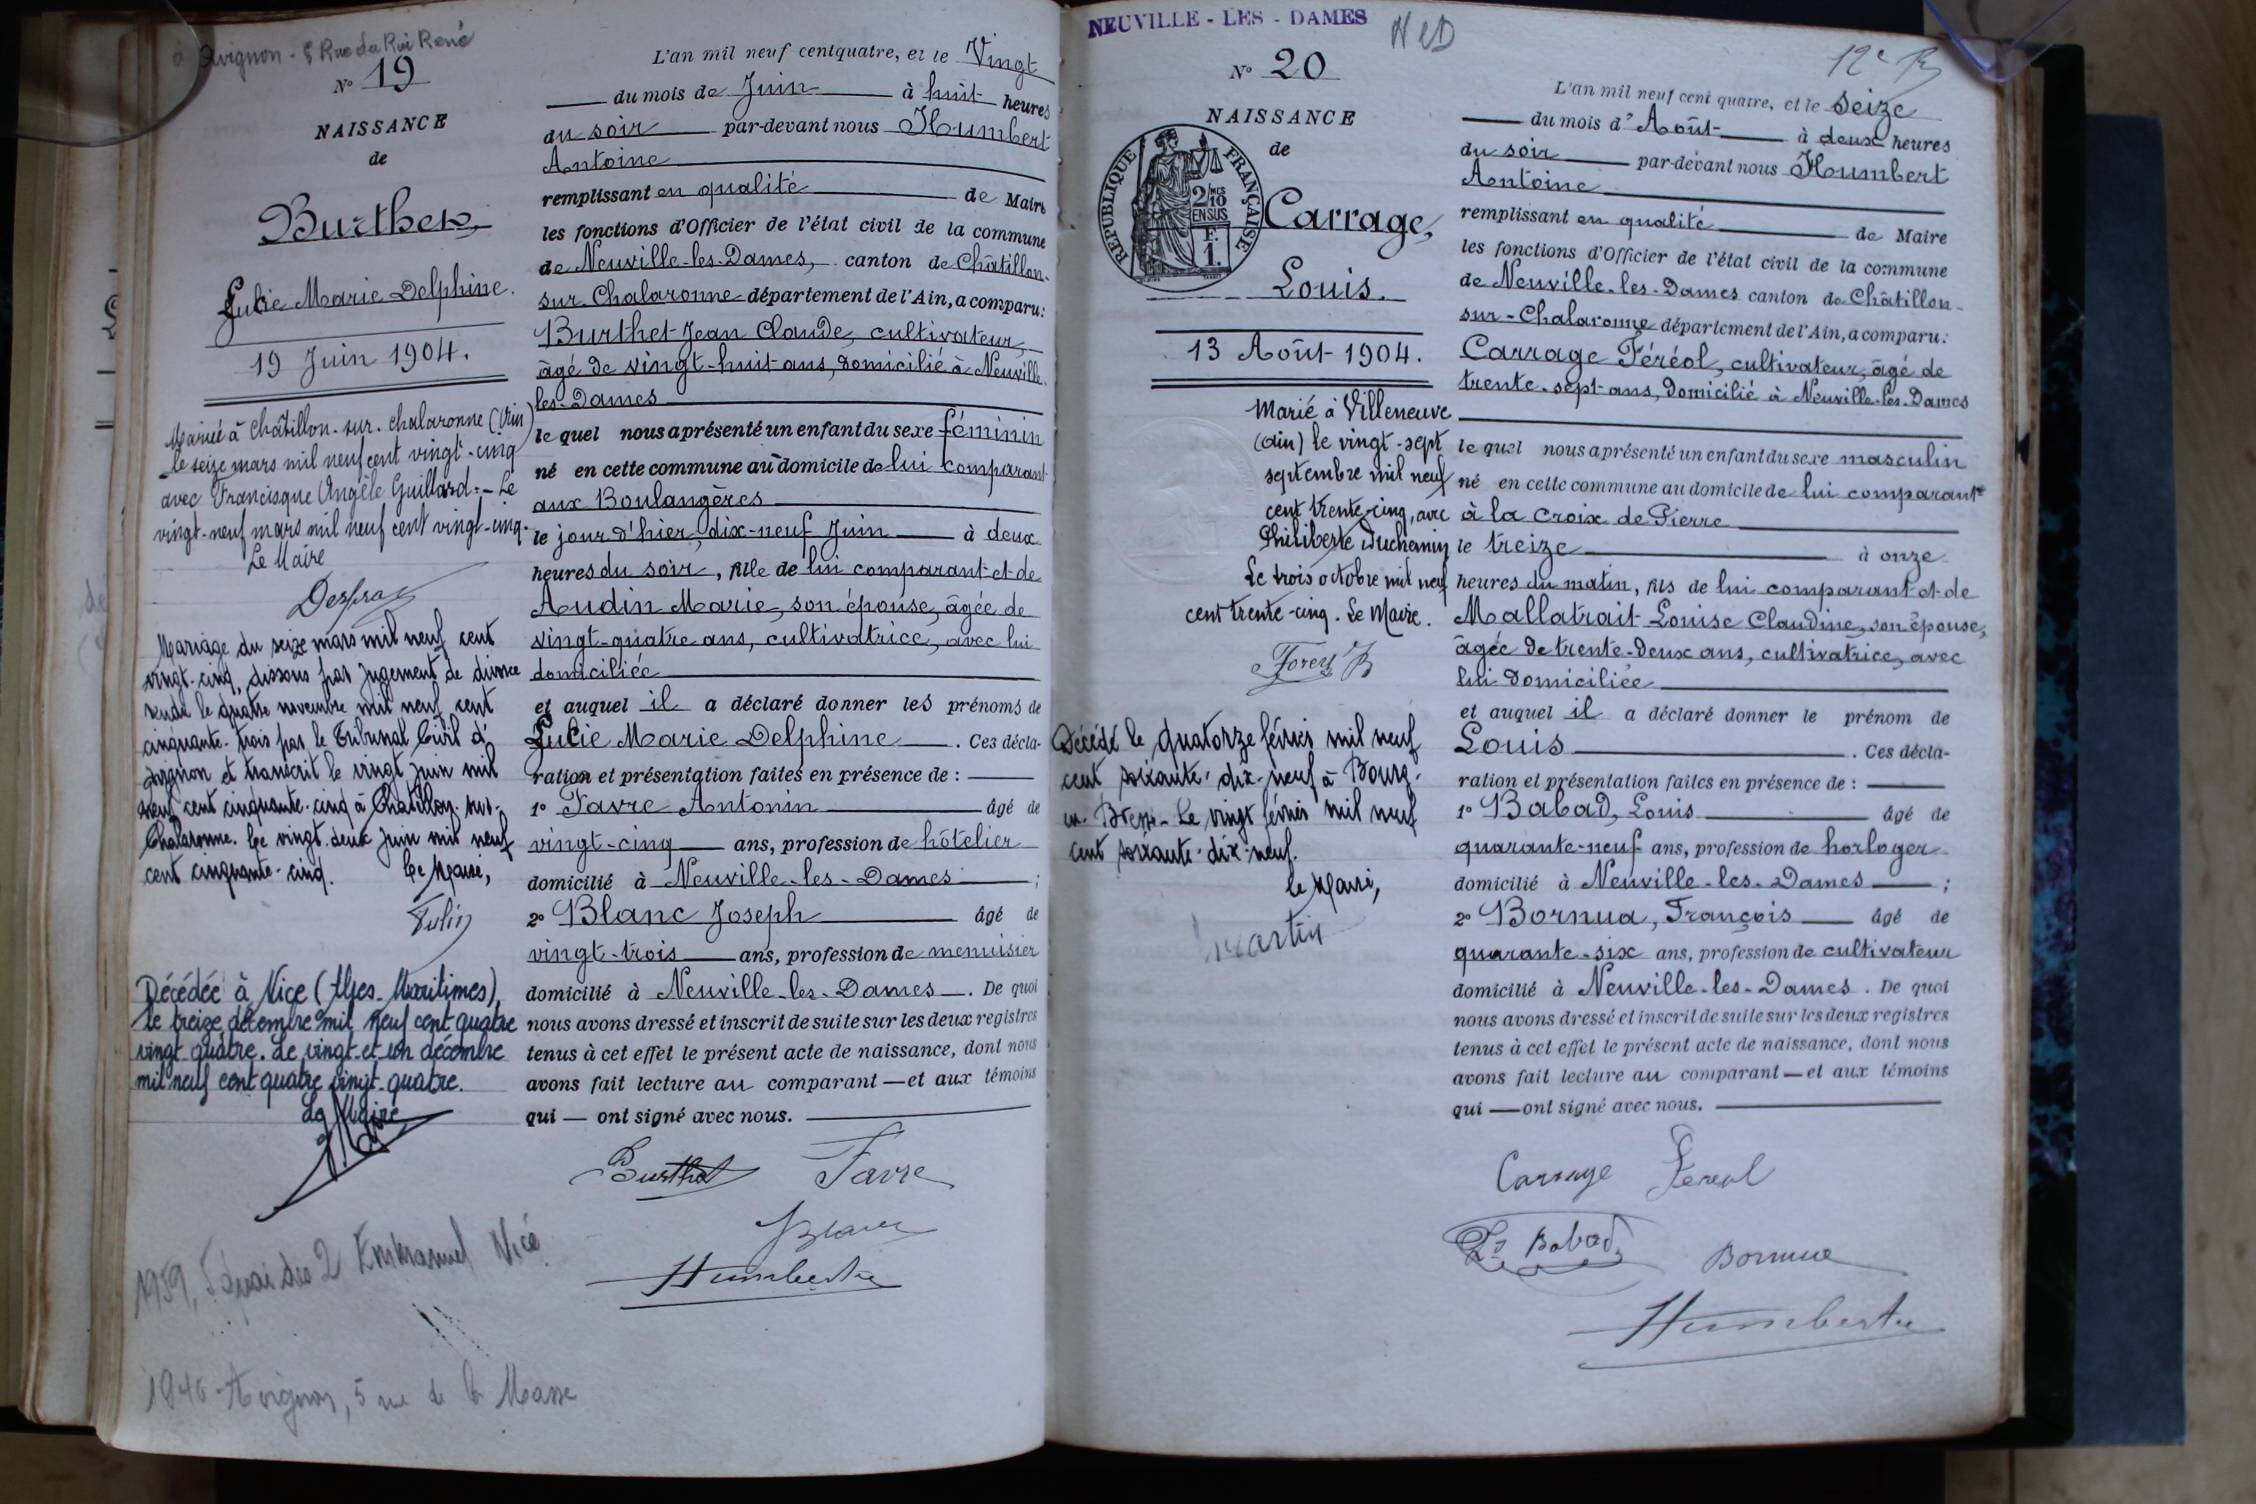 à Avignon - 5 Rue du Roi René
N° 19
NAISSANCE
de
Burthet
Lucie Marie Delphine.
19 Juin 1904.
Mariée à Châtillon-sur-Chalaronne (Ain)
le seize mars mil neuf cent vingt-cinq
avec Francisque Angèle Guillard. - Le
vingt-neuf mars mil neuf cent vingt-cinq.
Le Maire
Mariage du seize mars mil neuf cent
vingt-cinq, dissous par jugement de divorce
rendu le quatre novembre mil neuf cent
cinquante-trois par le Tribunal Civil d'
Avignon et transcrit le vingt juin mil
neuf cent cinquante-cinq à Châtillon-sur-
Chalaronne. Le vingt-deux juin mil neuf
cent cinquante-cinq. Le Maire,
Décédée à Nice (Alpes-Maritimes),
le treize décembre mil neuf cent quatre
vingt-quatre. Le vingt-et-un décembre
mil neuf cent quatre vingt-quatre.
Le Maire
1959, 5 quai des 2 Emmanuel Nice
1946 - Avignon, 5 rue de la Masse
L'an mil neuf cent quatre, et le Vingt
du mois de Juin à huit heures
du soir par-devant nous Humbert
Antoine
remplissant en qualité de Maire
les fonctions d'Officier de l'état civil de la commune
de Neuville-les-Dames, canton de Châtillon-
sur Chalaronne département de l'Ain, a comparu:
Burthet Jean Claude, cultivateur,
âgé de vingt-huit ans, domicilié à Neuville-
les-Dames
le quel nous a présenté un enfant du sexe féminin
né en cette commune au domicile de lui comparant
aux Boulangères
le jour d'hier, dix-neuf Juin à deux
heures du soir, fille de lui comparant et de
Audin Marie, son épouse, âgée de
vingt-quatre ans, cultivatrice, avec lui
domiciliée
et auquel il a déclaré donner les prénoms de
Lucie Marie Delphine. Ces décla-
ration et présentation faites en présence de :
1° Favre Antonin âgé de
vingt-cinq ans, profession de hôtelier
domicilié à Neuville-les-Dames ;
2° Blanc Joseph âgé de
vingt-trois ans, profession de menuisier
domicilié à Neuville-les-Dames. De quoi
nous avons dressé et inscrit de suite sur les deux registres
tenus à cet effet le présent acte de naissance, dont nous
avons fait lecture au comparant et aux témoins
qui ont signé avec nous.
Burthet Favre
Blanc
Humbert
NEUVILLE - LES - DAMES
N D
N° 20
NAISSANCE
de
RÉPUBLIQUE FRANÇAISE
2/10 MES
EN SUS
F.
1.
Carrage,
Louis.
13 Août 1904.
Marié à Villeneuve
(Ain) le vingt-sept
septembre mil neuf
cent trente-cinq, avec
Philiberte Duchemin
Le trois octobre mil neuf
cent trente-cinq. Le Maire.
Décédé le quatorze février mil neuf
cent soixante-dix-neuf à Bourg-
en-Bresse. Le vingt février mil neuf
cent soixante-dix-neuf.
Le Maire,
Martin
L'an mil neuf cent quatre, et le seize
du mois d'Août à deux heures
du soir par-devant nous Humbert
Antoine
remplissant en qualité de Maire
les fonctions d'Officier de l'état civil de la commune
de Neuville-les-Dames canton de Châtillon-
sur-Chalaronne département de l'Ain, a comparu:
Carrage Féréol, cultivateur, âgé de
trente-sept ans, domicilié à Neuville-les-Dames
le quel nous a présenté un enfant du sexe masculin
né en cette commune au domicile de lui comparant
à la Croix de Pierre
le treize à onze
heures du matin, fils de lui comparant et de
Mallatrait Louise Claudine, son épouse,
âgée de trente-deux ans, cultivatrice, avec
lui domiciliée
et auquel il a déclaré donner le prénom de
Louis. Ces décla-
ration et présentation faites en présence de :
1° Babad, Louis âgé de
quarante-neuf ans, profession de horloger
domicilié à Neuville-les-Dames ;
2° Bornua, François âgé de
quarante-six ans, profession de cultivateur
domicilié à Neuville-les-Dames. De quoi
nous avons dressé et inscrit de suite sur les deux registres
tenus à cet effet le présent acte de naissance, dont nous
avons fait lecture au comparant et aux témoins
qui ont signé avec nous.
Carrage Féréol
Ls Babad Bornua
Humbert